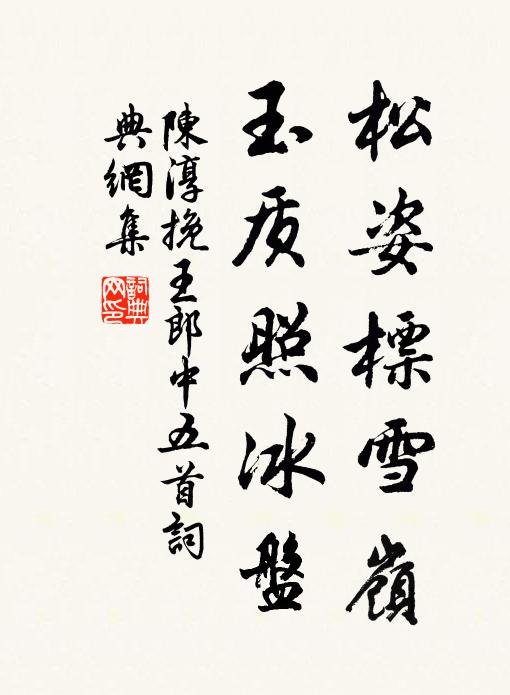 松姿標雪嶺
玉质照冰盤
陳淳挽王郎中五首詞
典網集
詞典
网印